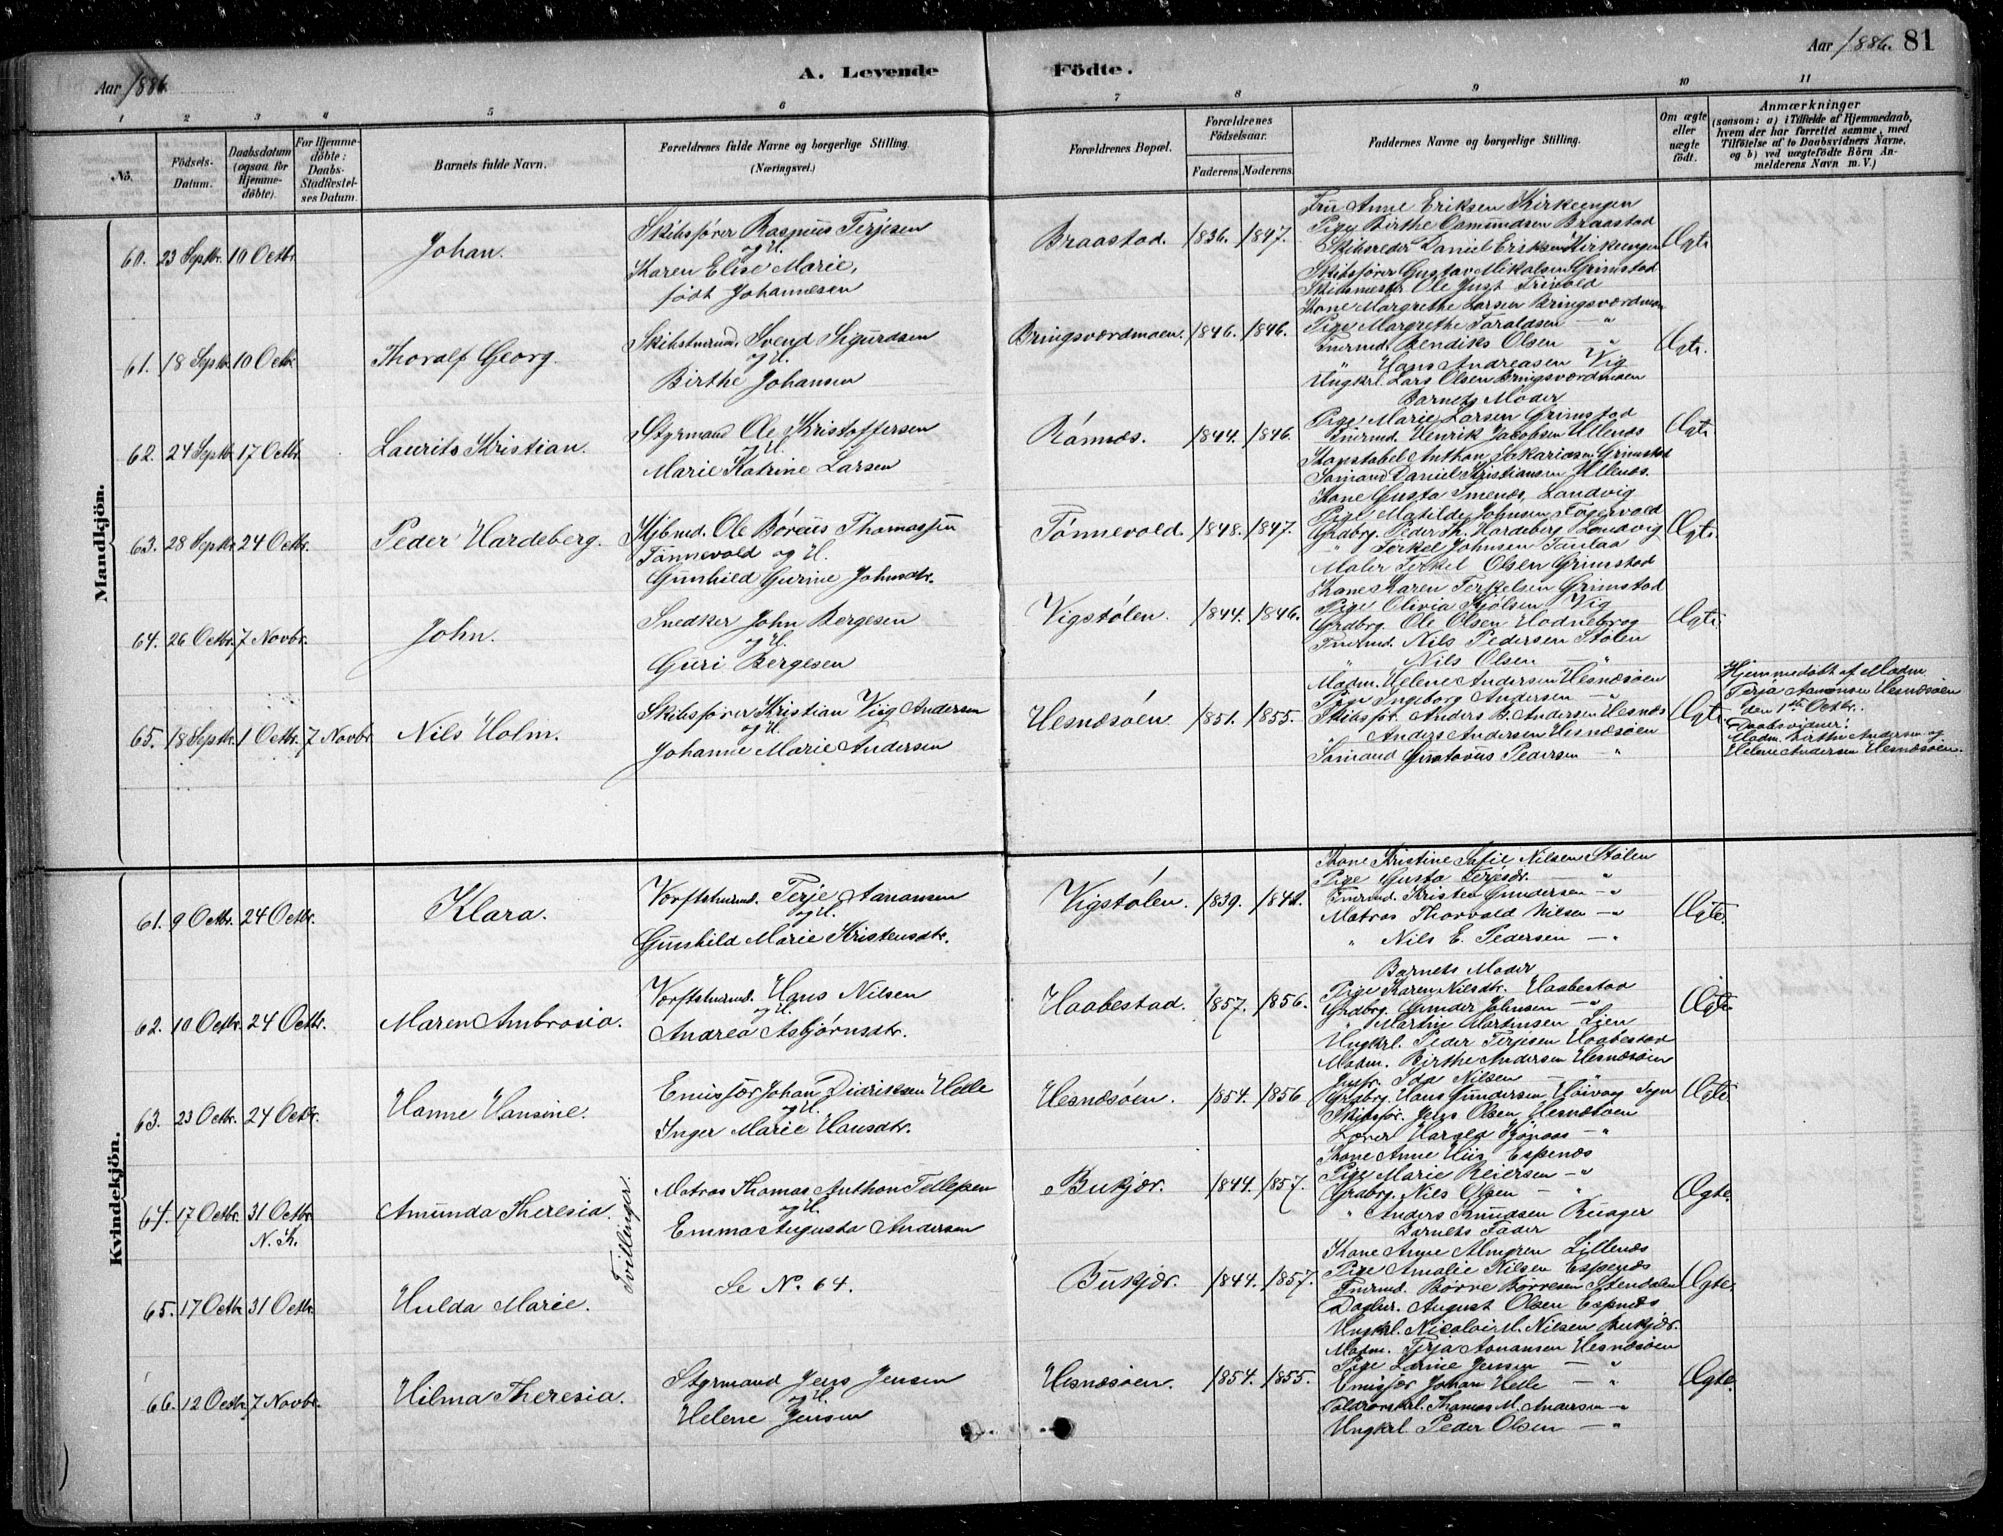 Aar 1886.
A. Levende Födte.
Aar 1886. 81
1 2 3 4 5 6 7 8 9 10 11
No.
Födsels-Datum.
Daabsdatum (ogsaa for Hjemme-döbte).
For Hjemme-döbte: Daabs-Stadfæstel-ses Datum.
Barnets fulde Navn.
Forældrenes fulde Navne og borgerlige Stilling. (Næringsvei.)
Forældrenes Bopæl.
Forældrenes Födselsaar.
Faderens. Moderens.
Faddernes Navne og borgerlige Stilling.
Om ægte eller uægte födt.
Anmærkninger
(saasom: a) i Tilfælde af Hjemmedaab,
hvem der har forrettet samme, med
Tilföielse af to Daabsvidners Navne,
og b) ved uægtefödte Börn An-
melderens Navn m. V.)
Mandkjön.
60. 23 Septbr. 10 Octbr. Johan.
Skibsfører Rasmus Terjesen
og H.
Karen Elise Marie,
født Johannesen
Braastad. 1836. 1847.
Fru Anne Eriksen Kirkeengen
Pige Birthe Osmundsen Braastad
Skibsreder Daniel Eriksen Kirkeengen
Skibsfører Gustav Mikalsen Grimstad
Skibsmester Ole Just Frivold
Ægte
61. 18 Septbr. 10 Octbr. Thoralf Georg.
Skibstmrmd. Svend Sigurdsen
og H.
Birthe Johansen
Bringsværdmoen. 1846. 1846.
Kone Margrethe Larsen Bringsværdmoen
Pige Margrethe Taraldsen — "
Tmrmd. Bendiks Olsen — "
" Hans Andreasen Vig
Ungkrl. Lars Olsen Bringsværdmoen
Ægte.
62. 24 Septbr. 17 Octbr. Laurits Kristian.
Styrmand Ole Kristoffersen
og H.
Marie Katrine Larsen
Rønnes. 1844. 1846.
Barnets Moder
Pige Marie Larsen Grimstad
Tmrmd. Henrik Jacobsen Ullenes
Konstabel Anthon Sakariasen Grimstad
Sømand Daniel Kristiansen Ullenes.
Ægte
63. 28 Septbr. 24 Octbr. Peder Hardeberg.
Skibmd. Ole Børeus Thomassen
Tønnevold og H.
Gunhild Gurine Johnsdtr.
Tønnevold. 1848. 1847.
Kone Gusta Imenes, Landvig
Pige Matilde Johnsen
Grdbrg. Peder Th. Hardeberg Landvig
" Terkel Johnsen
Maler Terkel Olsen Grimstad
Ægte
64. 26 Octbr. 7 Novbr. John.
Snedker John Bergesen
og H.
Guri Bergesen
Vigstølen. 1844. 1846.
Kone Karen Terkelsen Grimstad
Pige Olivia Vig
Grdbrg. Ole Olsen Hodnebrog
Tmrmd. Nils Pedersen Stølen
" Nils Olsen "
Ægte
65. 18 Septbr. 1 Octbr. 7 Novbr. Nils Holm.
Skibsfører Kristian Viig Andersen
og H.
Johanne Marie Andersen
Hesnæsøen. 1851. 1855.
Madm. Helene Andersen Hesnæsøen
Pige Ingeborg Andersen — "
Skibsfør. Anders B. Andersen Hesnæs
" Anders Andersen Hesnæsøen
Sømand Gustavus Pedersen — "
Ægte
Hjemmedøbt af Madm.
Terja Aanonsen Hesnæsøen
den 1ste Octbr.
Daabsvidner:
Madm. Birthe Andersen og
Helene Andersen Hesnæsøen.
Kvindekjön.
61. 9 Octbr. 24 Octbr. Klara.
Værftstmrmd. Terje Aanonsen
og H.
Gunhild Marie Kristensdtr.
Vigstølen. 1839. 1841.
Kone Kristine Sofie Nilsen Stølen
Pige Gusta Terjesdr. — "
Tmrmd. Kristen Gundersen — "
Matros Thorvald Nilsen — "
" Nils E. Pedersen — "
Ægte.
62. 10 Octbr. 24 Octbr. Maren Ambrosia.
Værftstmrmd. Hans Nilsen
og H.
Andrea Asbjørnsdtr.
Haabestad. 1857. 1856.
Barnets Moder
Pige Karen Nilsdtr. Haabestad
Grdbrg. Gunder Johnsen — "
" Martin Martinsen Lien
Ungkrl. Peder Terjesen Haabestad
Ægte
63. 23 Octbr. 24 Octbr. Hanne Hansine.
Emisfør Johan Didriksen Helle
og H.
Inger Marie Hansdtr.
Hesnæsøen. 1854. 1856
Madm. Birthe Andersen Hesnæsøen
Jmfr. Ida Nilsen — "
Grdbrg. Hans Gundersen Høivaag Sogn
Skibsfør. Jens Olsen Hesnæsøen
Lærer Harald — "
Ægte
64. 17 Octbr. 31 Octbr. N.K. Amunda Theresia.
Tvillinger.
Matros Thomas Anthon Tellefsen
og H.
Emma Augusta Andersen
Bukjær. 1844. 1857.
Kone Anne Espenæs
Pige Marie Reiersen — "
Grdbrg. Nils Olsen — "
" Anders Knudsen Ruager
Barnets Fader
Ægte.
65. 17 Octbr. 31 Octbr. Hulda Marie.
Se No. 64.
Bukjær. 1844. 1857.
Kone Anne Almgren Lillenæs
Pige Amalie Nilsen Espenæs
Tmrmd. Børre Børresen Stendalen
Daglnr. August Olsen Espenæs
Ungkrl. Nicolai M. Nilsen Bukjær.
Ægte.
66. 12 Octbr. 7 Novbr. Hilma Theresia.
Styrmand Jens Jensen
og H.
Helene Jensen
Hesnæsøen. 1854. 1855.
Madm. Terja Aanonsen Hesnæsøen
Pige Larine Jensen — "
Emisfør Johan Helle — "
Thomas M. Andersen — "
Ungkrl. Peder Olsen — "
Ægte.